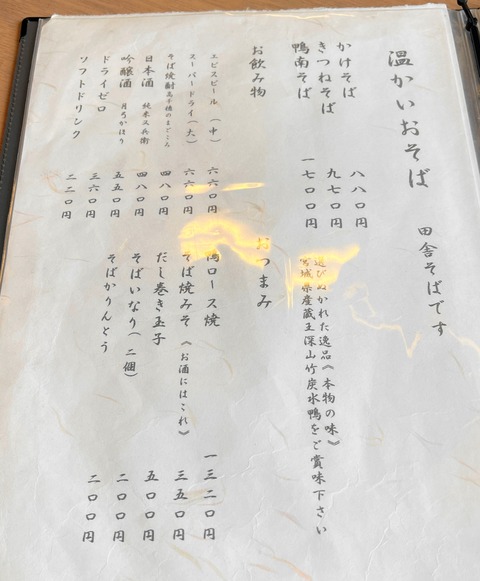 温かいおそば　田舎そばです
かけそば　八八〇円
きつねそば　九七〇円
鴨南そば　一七〇〇円
選びぬかれた逸品《本物の味》
宮城県産蔵王深山竹炭水鴨をご賞味下さい
お飲み物
ヱビスビール（中）　六六〇円
スーパードライ（大）　六六〇円
そば焼酎 高千穂のまごころ　四八〇円
日本酒　純米 又兵衛　四八〇円
吟醸酒　月弓かほり　五五〇円
ドライゼロ　三六〇円
ソフトドリンク　二二〇円
おつまみ
鴨ロース焼　一三二〇円
そば焼みそ《お酒にはこれ》　三五〇円
だし巻き玉子　五〇〇円
そばいなり（二個）　二〇〇円
そばかりんとう　二〇〇円